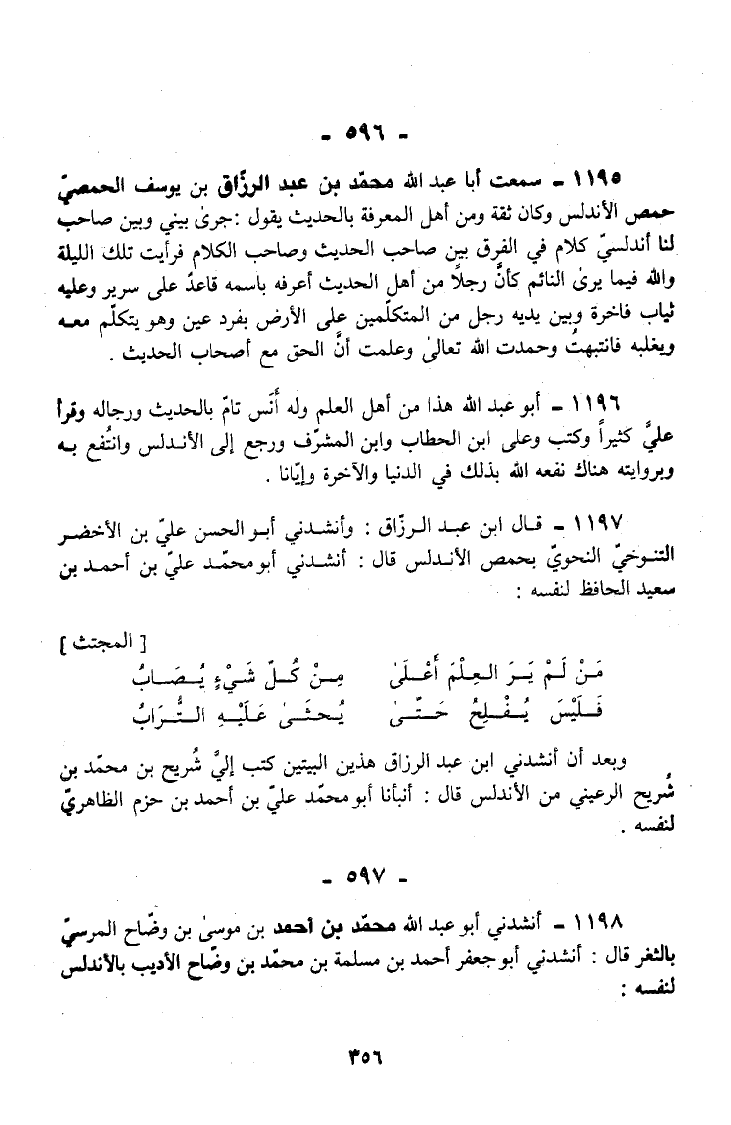 - ٥٩٦ -
١١٩٥ - سمعت أبا عبد الله محمّد بن عبد الرزّاق بن يوسف الحمصيّ
حمص الأندلس وكان ثقة ومن أهل المعرفة بالحديث يقول : جرىٰ بيني وبين صاحب
لنا أندلسيّ كلام في الفرق بين صاحب الحديث وصاحب الكلام فرأيت تلك الليلة
والله فيما يرىٰ النائم كأنَّ رجلاً من أهل الحديث أعرفه باسمه قاعدٌ على سرير وعليه
ثياب فاخرة وبين يديه رجل من المتكلّمين على الأرض بفرد عين وهو يتكلّم معه
ويغلبه فانتبهتُ وحمدت الله تعالىٰ وعلمت أنَّ الحق مع أصحاب الحديث .
١١٩٦ - أبو عبد الله هذا من أهل العلم وله أَنَس تامّ بالحديث ورجاله وقرأ
عليَّ كثيراً وكتب وعلى ابن الحطاب وابن المشرّف ورجع إلى الأندلس وانتُفع به
وبروايته هناك نفعه الله بذلك في الدنيا والآخرة وإيّانا .
١١٩٧ - قال ابن عبد الرزّاق : وأنشدني أبو الحسن عليّ بن الأخضر
التنوخيّ النحويّ بحمص الأندلس قال : أنشدني أبو محمّد عليّ بن أحمد بن
سعيد الحافظ لنفسه :
[ المجتث ]
مَنْ لَمْ يَرَ العِلْمَ أَعْلَىٰ مِنْ كُلّ شَيْءٍ يُصَابُ
فَلَيْسَ يُفْلِحُ حَتّىٰ يُحثَىٰ عَلَيْهِ التُّرَابُ
وبعد أن أنشدني ابن عبد الرزاق هذين البيتين كتب إليَّ شُريح بن محمّد بن
شُريح الرعيني من الأندلس قال : أنبأنا أبو محمّد عليّ بن أحمد بن حزم الظاهريّ
لنفسه .
- ٥٩٧ -
١١٩٨ - أنشدني أبو عبد الله محمّد بن أحمد بن موسىٰ بن وضّاح المرسيّ
بالثغر قال : أنشدني أبو جعفر أحمد بن مسلمة بن محمّد بن وضّاح الأديب بالأندلس
لنفسه :
٣٥٦